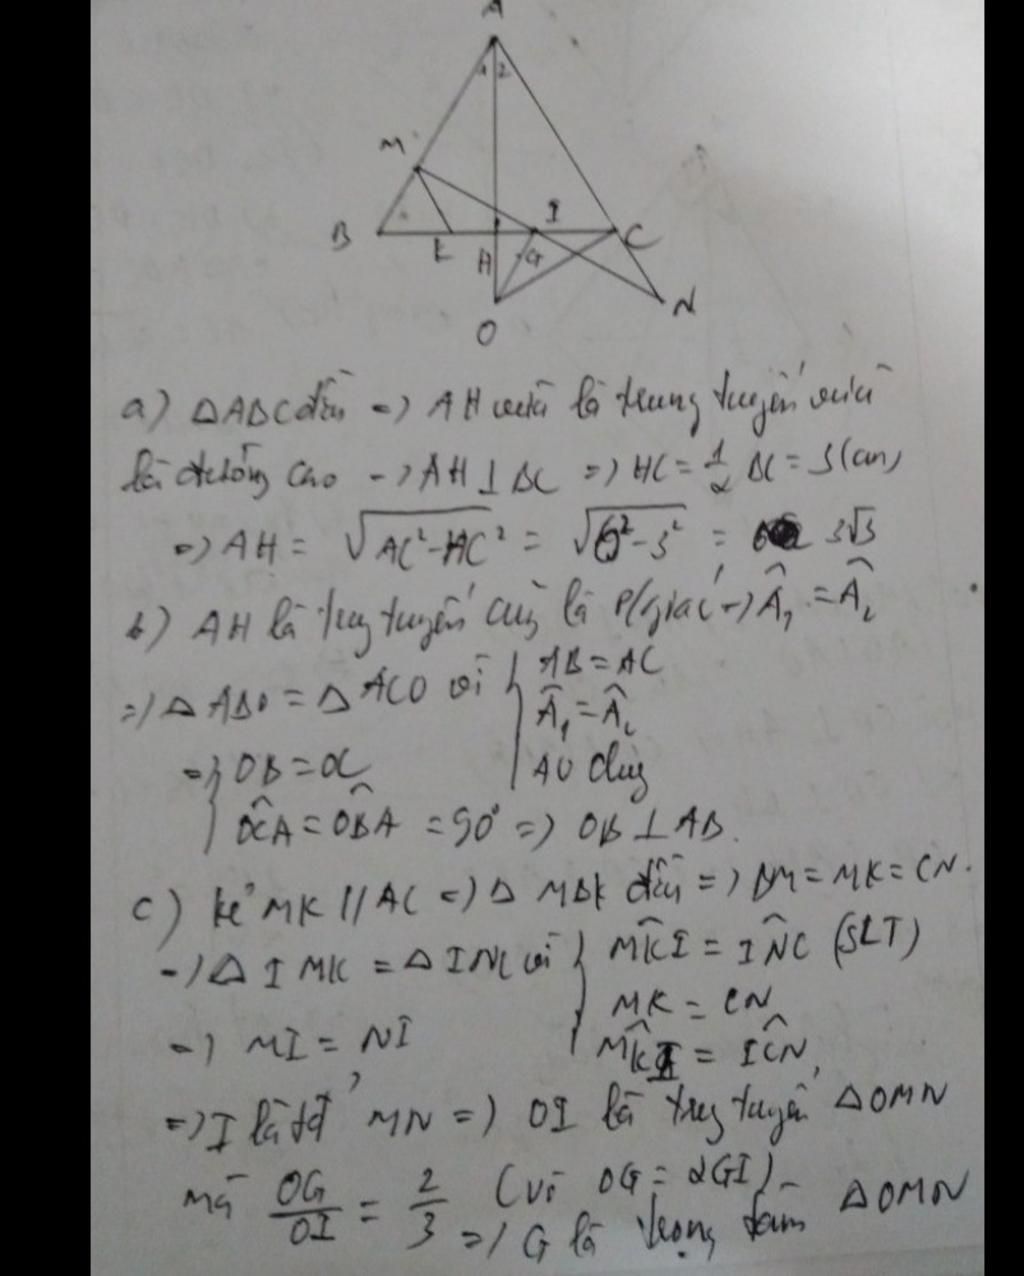 A
1 2
M
B K H I C
G
O
N
a) ΔABC đều => AH vừa là trung tuyến vừa
là đường cao -> AH ⊥ BC => HC = 1/2 BC = 3(cm)
=> AH = √(AC² - HC²) = √(6² - 3²) = 3√3
b) AH là trung tuyến cũng là p/giác -> Â₁ = Â₂
=> ΔABO = ΔACO vì { AB = AC
Â₁ = Â₂
AO chung
=> { OB = OC
OĈA = OB̂A = 90° => OB ⊥ AB.
c) kẻ MK // AC => Δ MBK đều => BM = MK = CN.
-> Δ IMK = Δ INC vì { MK̂I = IN̂C (SLT)
MK = CN
MK̂I = IĈN
-> MI = NI
=> I là tđ MN => OI là trung tuyến ΔOMN
mà OG/OI = 2/3 (vì OG = 2GI)
=> G là trọng tâm ΔOMN